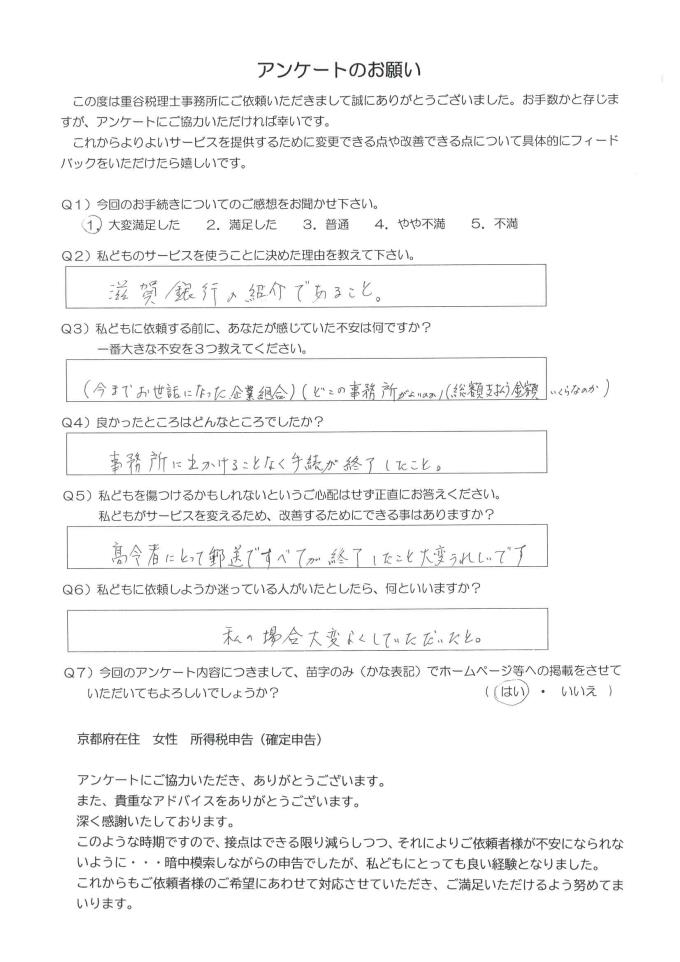 アンケートのお願い
この度は重谷税理士事務所にご依頼いただきまして誠にありがとうございました。お手数かと存じま
すが、アンケートにご協力いただければ幸いです。
これからよりよいサービスを提供するために変更できる点や改善できる点について具体的にフィード
バックをいただけたら嬉しいです。
Q1）今回のお手続きについてのご感想をお聞かせ下さい。
1. 大変満足した　2. 満足した　3. 普通　4. やや不満　5. 不満
Q2）私どものサービスを使うことに決めた理由を教えて下さい。
滋賀銀行の紹介であること。
Q3）私どもに依頼する前に、あなたが感じていた不安は何ですか？
一番大きな不安を3つ教えてください。
(今までお世話になった企業組合)(どこの事務所がよいのか)(総額支払う金額いくらなのか)
Q4）良かったところはどんなところでしたか？
事務所に出かけることなく手続が終了したこと。
Q5）私どもを傷つけるかもしれないというご心配はせず正直にお答えください。
私どもがサービスを変えるため、改善するためにできる事はありますか？
高令者にとって郵送ですべてが終了したこと大変うれしいです
Q6）私どもに依頼しようか迷っている人がいたとしたら、何といいますか？
私の場合大変よくしていただいたと。
Q7）今回のアンケート内容につきまして、苗字のみ（かな表記）でホームページ等への掲載をさせて
いただいてもよろしいでしょうか？　（ はい ・ いいえ ）
京都府在住　女性　所得税申告（確定申告）
アンケートにご協力いただき、ありがとうございます。
また、貴重なアドバイスをありがとうございます。
深く感謝いたしております。
このような時期ですので、接点はできる限り減らしつつ、それによりご依頼者様が不安になられな
いように・・・暗中模索しながらの申告でしたが、私どもにとっても良い経験となりました。
これからもご依頼者様のご希望にあわせて対応させていただき、ご満足いただけるよう努めてま
いります。